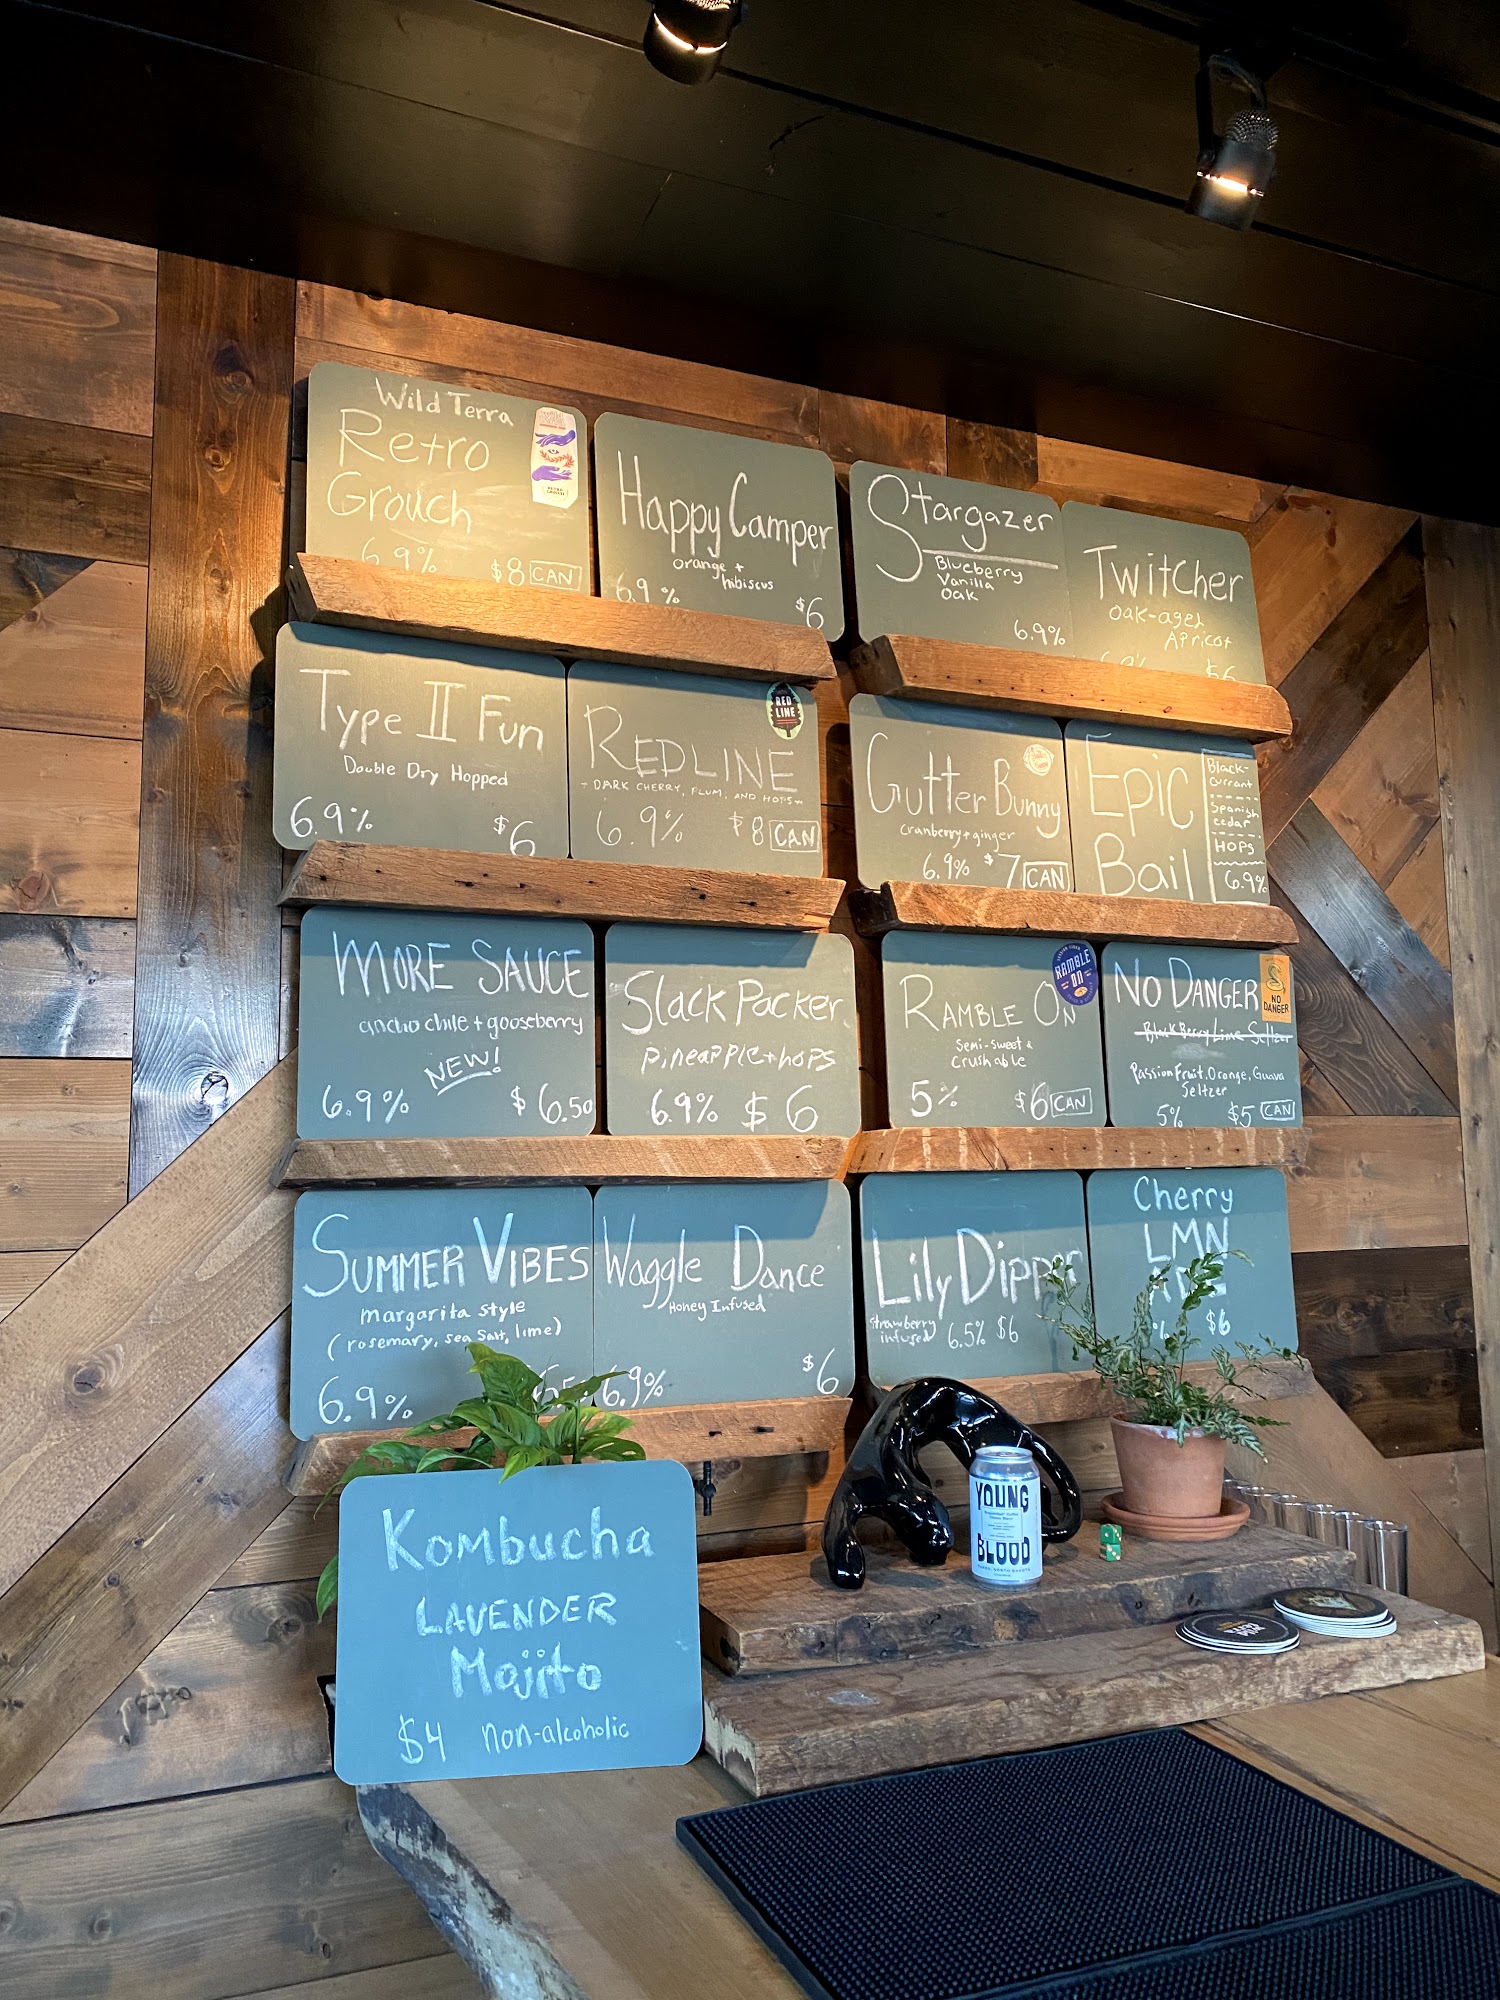 Wild Terra
Retro
Grouch
6.9%
$8 CAN
Happy Camper
orange +
hibiscus
6.9%
$6
Stargazer
Blueberry
Vanilla
Oak
6.9%
Twitcher
Oak-aged
Apricot
$6
Type II Fun
Double Dry Hopped
6.9%
$6
RED
LINE
REDLINE
- DARK CHERRY, PLUM, AND HOPS -
6.9%
$8 CAN
Gutter Bunny
cranberry + ginger
6.9% $7 CAN
Epic
Bail
Black-
currant
Spanish
cedar
HOPS
6.9%
MORE SAUCE
ancho chile + gooseberry
NEW!
6.9%
$6.50
Slack Packer
pineapple + hops
6.9% $6
RAMBLE
ON
RAMBLE ON
Semi-sweet &
Crushable
5%
$6 CAN
NO
DANGER
NO DANGER
BlackBerry Lime Seltzer
Passion Fruit, Orange, Guava
Seltzer
5%
$5 CAN
SUMMER VIBES
margarita style
(rosemary, sea salt, lime)
6.9%
Waggle Dance
Honey Infused
6.9%
$6
Lily Dipper
Strawberry
infused
6.5% $6
Cherry
LMN
%
$6
Kombucha
LAVENDER
Mojito
$4 non-alcoholic
YOUNG
BLOOD